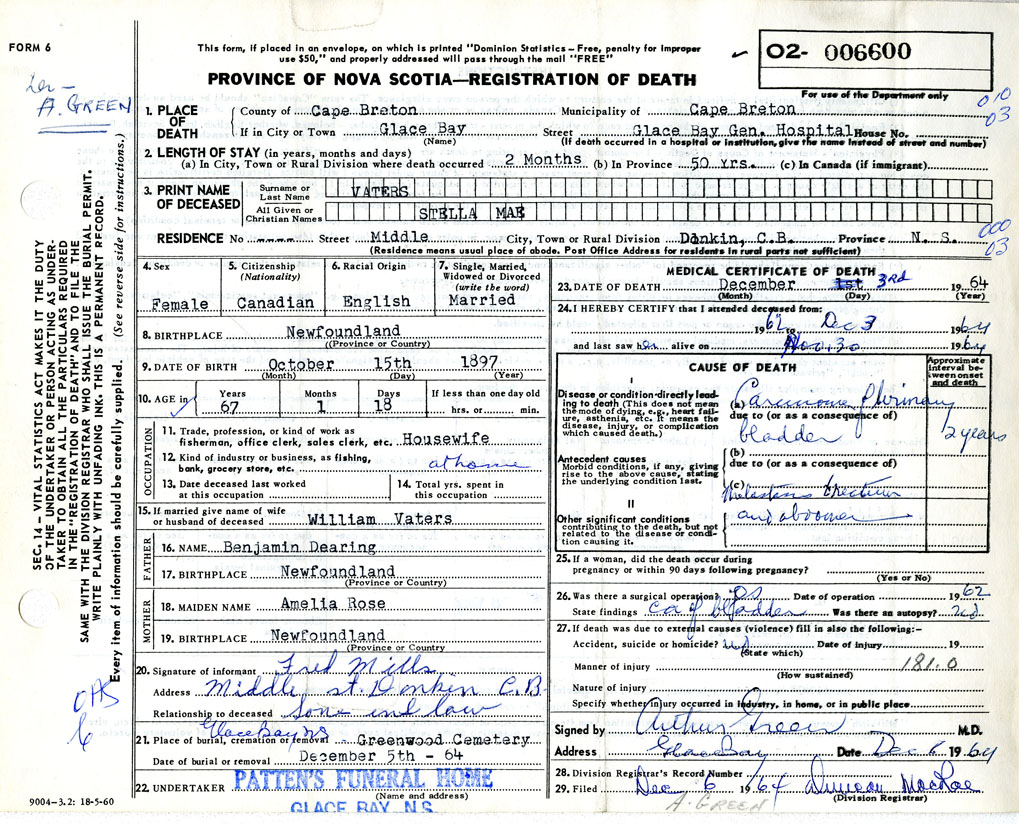 FORM 6
This form, if placed in an envelope, on which is printed "Dominion Statistics – Free, penalty for improper
use $50," and properly addressed will pass through the mail "FREE"
PROVINCE OF NOVA SCOTIA—REGISTRATION OF DEATH
02- 006600
For use of the Department only
A. GREEN
010
03
1. PLACE OF DEATH
County of Cape Breton Municipality of Cape Breton
If in City or Town Glace Bay Street Glace Bay Gen. Hospital House No.
(Name) (If death occurred in a hospital or institution, give the name instead of street and number)
2. LENGTH OF STAY (in years, months and days)
(a) In City, Town or Rural Division where death occurred 2 Months (b) In Province 50 Yrs. (c) In Canada (if immigrant)
3. PRINT NAME OF DECEASED
Surname or Last Name VATERS
All Given or Christian Names STELLA MAE
000
03
RESIDENCE No ---- Street Middle City, Town or Rural Division Donkin, C.B. Province N. S.
(Residence means usual place of abode. Post Office Address for residents in rural parts not sufficient)
4. Sex
Female
5. Citizenship
(Nationality)
Canadian
6. Racial Origin
English
7. Single, Married, Widowed or Divorced
(write the word)
Married
8. BIRTHPLACE Newfoundland
(Province or Country)
9. DATE OF BIRTH October 15th 1897
(Month) (Day) (Year)
10. AGE in
Years Months Days If less than one day old
67 1 18 hrs. or min.
OCCUPATION
11. Trade, profession, or kind of work as
fisherman, office clerk, sales clerk, etc. Housewife
12. Kind of industry or business, as fishing,
bank, grocery store, etc. at home
13. Date deceased last worked
at this occupation
14. Total yrs. spent in
this occupation
15. If married give name of wife
or husband of deceased William Vaters
FATHER
16. NAME Benjamin Dearing
17. BIRTHPLACE Newfoundland
(Province or Country)
MOTHER
18. MAIDEN NAME Amelia Rose
19. BIRTHPLACE Newfoundland
(Province or Country)
20. Signature of informant Fred Mills
Address Middle st. Donkin C.B.
Relationship to deceased Sone in law
Glace Bay NS
21. Place of burial, cremation or removal Greenwood Cemetery
Date of burial or removal December 5th - 64
22. UNDERTAKER PATTEN'S FUNERAL HOME
(Name and address)
GLACE BAY, N.S.
MEDICAL CERTIFICATE OF DEATH
23. DATE OF DEATH December 1st 3rd 1964
(Month) (Day) (Year)
24. I HEREBY CERTIFY that I attended deceased from:
1962 to Dec 3 1964
and last saw her alive on Nov. 30 1964
CAUSE OF DEATH
Approximate interval between onset and death
I
Disease or condition directly leading to death (This does not mean the mode of dying, e.g., heart failure, asthenia, etc. It means the disease, injury, or complication which caused death.)
(a) Carcinoma urinary
due to (or as a consequence of)
bladder 2 years
Antecedent causes
Morbid conditions, if any, giving rise to the above cause, stating the underlying condition last.
(b)
due to (or as a consequence of)
(c)
II
Other significant conditions
contributing to the death, but not related to the disease or condition causing it.
and
25. If a woman, did the death occur during
pregnancy or within 90 days following pregnancy?
(Yes or No)
26. Was there a surgical operation? Date of operation 1962
State findings ca of bladder Was there an autopsy?
27. If death was due to external causes (violence) fill in also the following:–
Accident, suicide or homicide? Date of injury 19
(State which)
Manner of injury 181.0
(How sustained)
Nature of injury
Specify whether injury occurred in industry, in home, or in public place
Signed by Arthur Green M.D.
Address Glace Bay Date Dec 6 1964
28. Division Registrar's Record Number
29. Filed Dec 6 1964 Duncan MacRae
A. GREEN (Division Registrar)
SEC. 14 – VITAL STATISTICS ACT MAKES IT THE DUTY
OF THE UNDERTAKER OR PERSON ACTING AS UNDER-
TAKER TO OBTAIN ALL THE PARTICULARS REQUIRED
IN THE "REGISTRATION OF DEATH" AND TO FILE THE
SAME WITH THE DIVISION REGISTRAR WHO SHALL ISSUE THE BURIAL PERMIT.
WRITE PLAINLY WITH UNFADING INK. THIS IS A PERMANENT RECORD.
Every item of information should be carefully supplied. (See reverse side for instructions.)
OAS
9004-3.2: 18-5-60